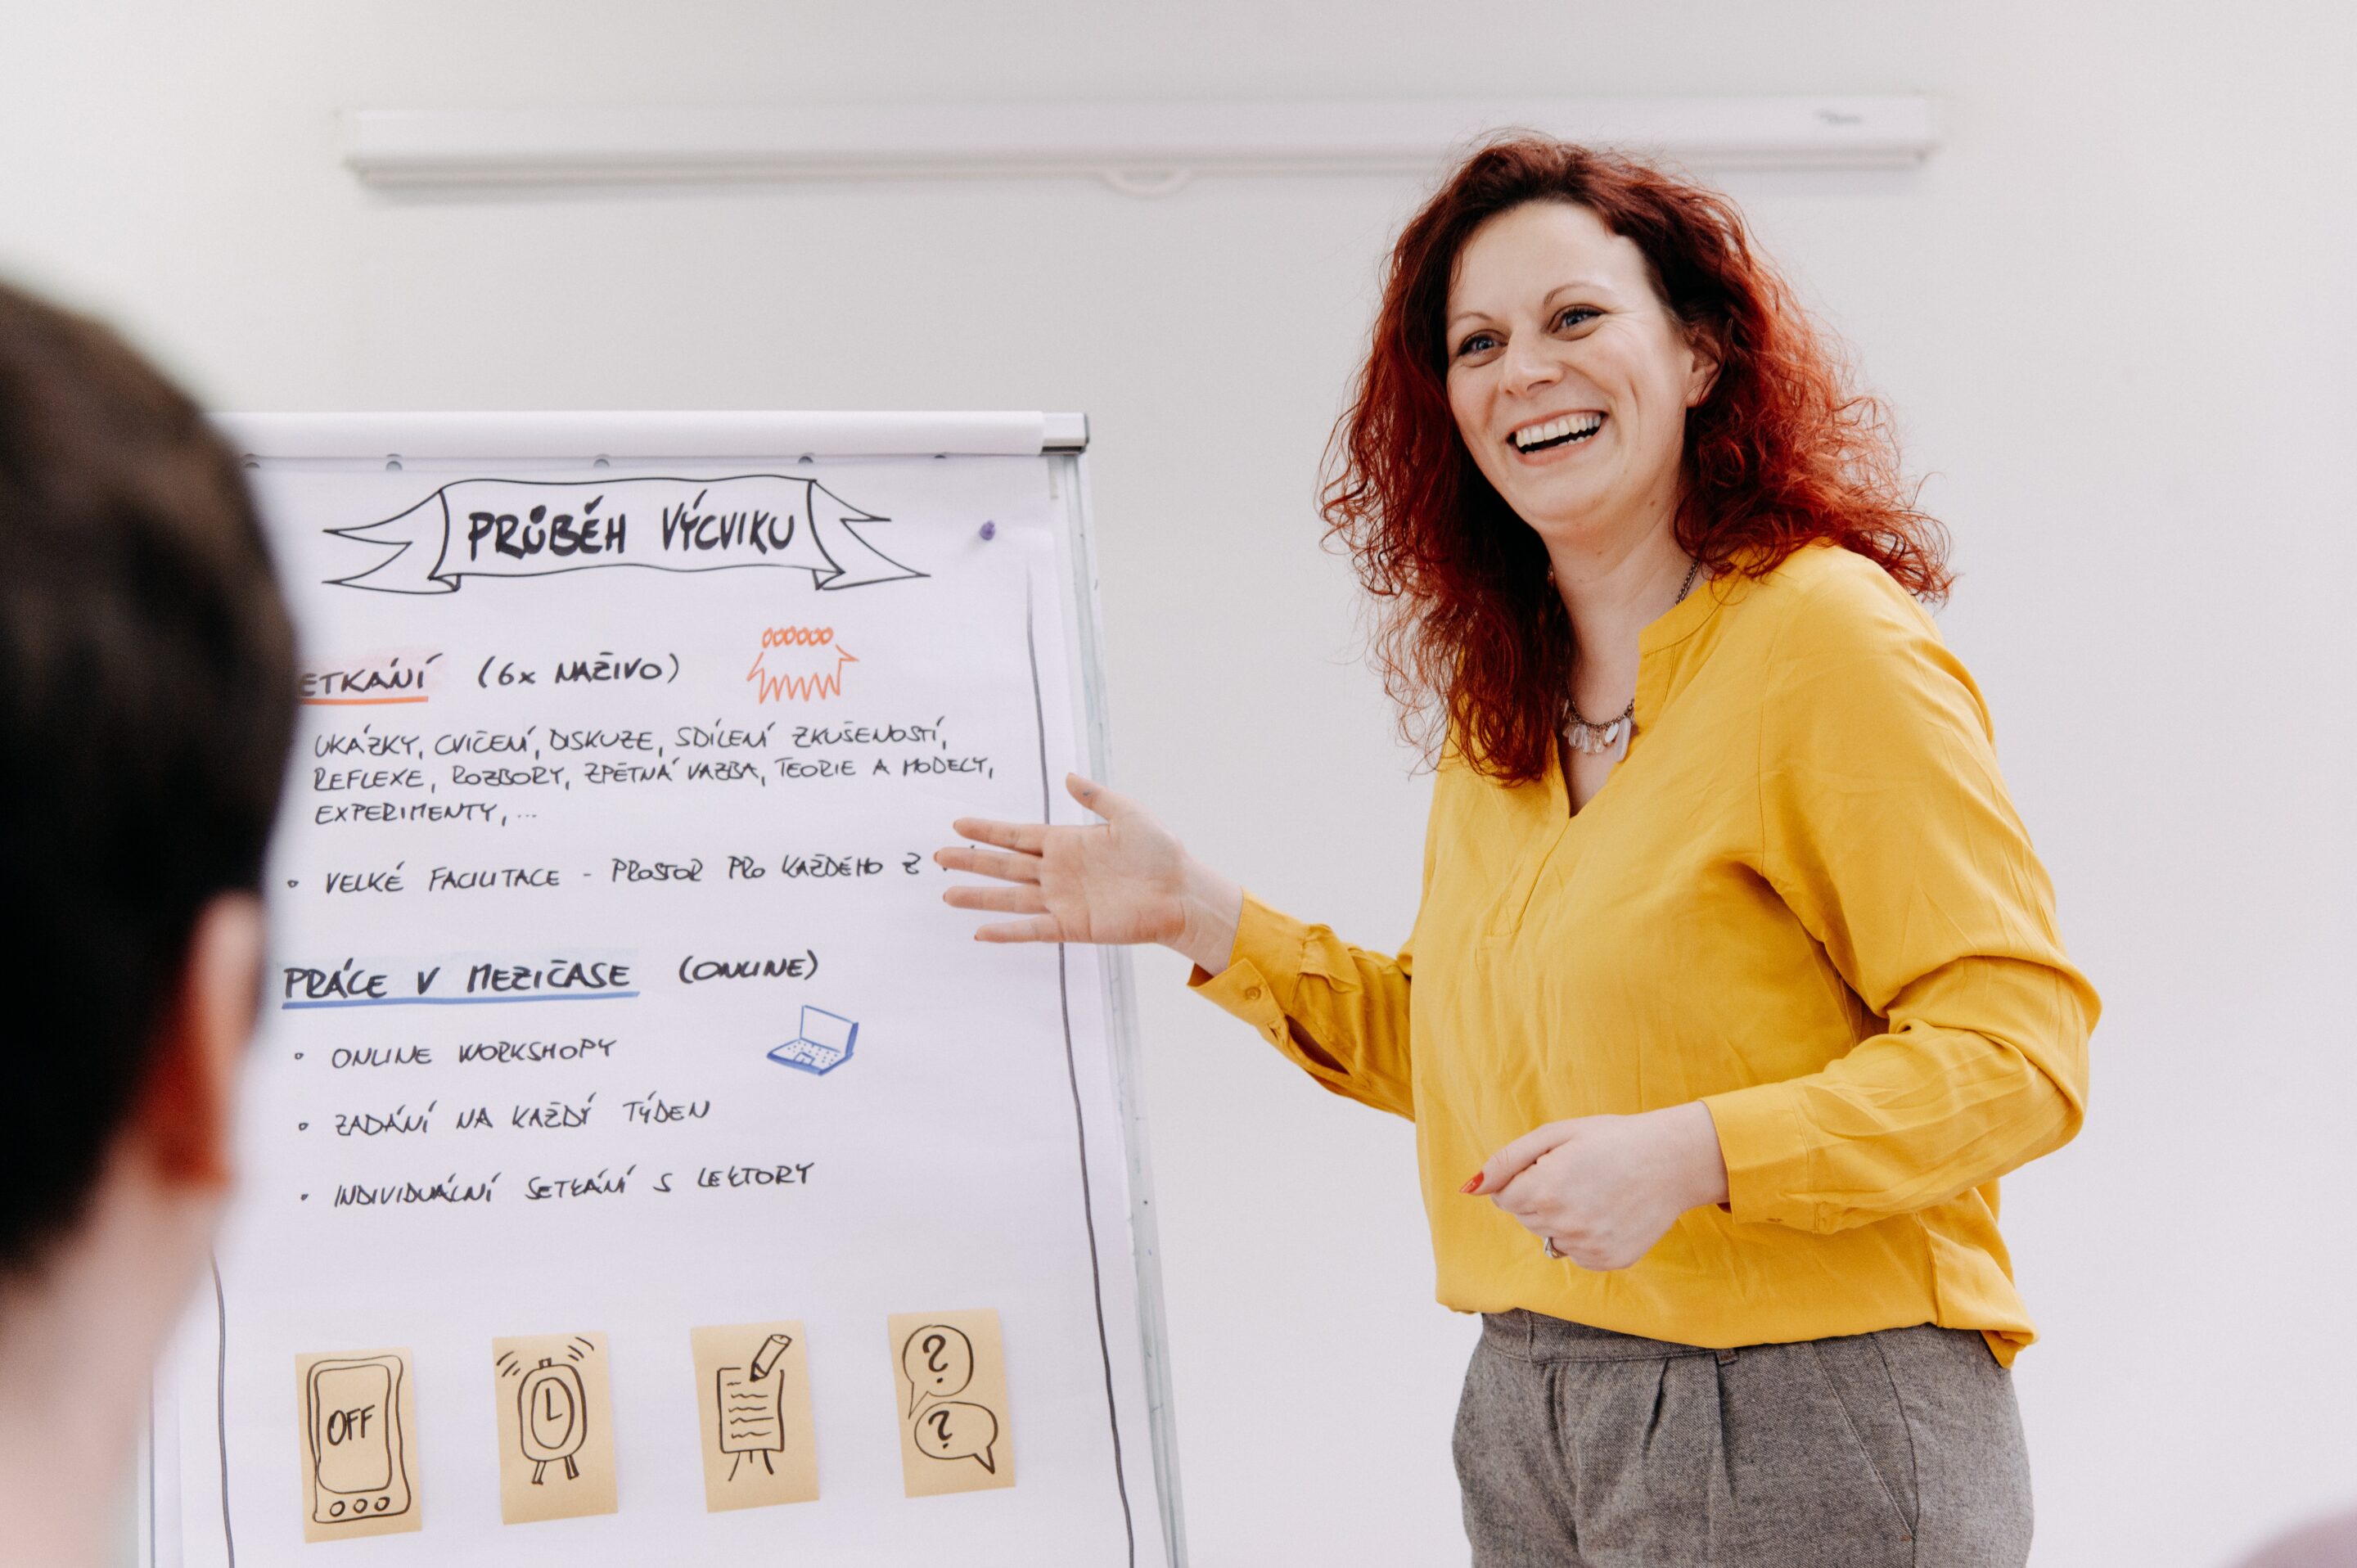 PRŮBĚH VÝCVIKU
ETKÁNÍ (6x NAŽIVO)
UKÁZKY, CVIČENÍ, DISKUZE, SDÍLENÍ ZKUŠENOSTÍ,
REFLEXE, ROZBORY, ZPĚTNÁ VAZBA, TEORIE A MODELY,
EXPERIMENTY, ...
• VELKÉ FACILITACE - PROSTOR PRO KAŽDÉHO Z
PRÁCE V MEZIČASE (ONLINE)
• ONLINE WORKSHOPY
• ZADÁNÍ NA KAŽDÝ TÝDEN
• INDIVIDUÁLNÍ SETKÁNÍ S LEKTORY
OFF
?
?